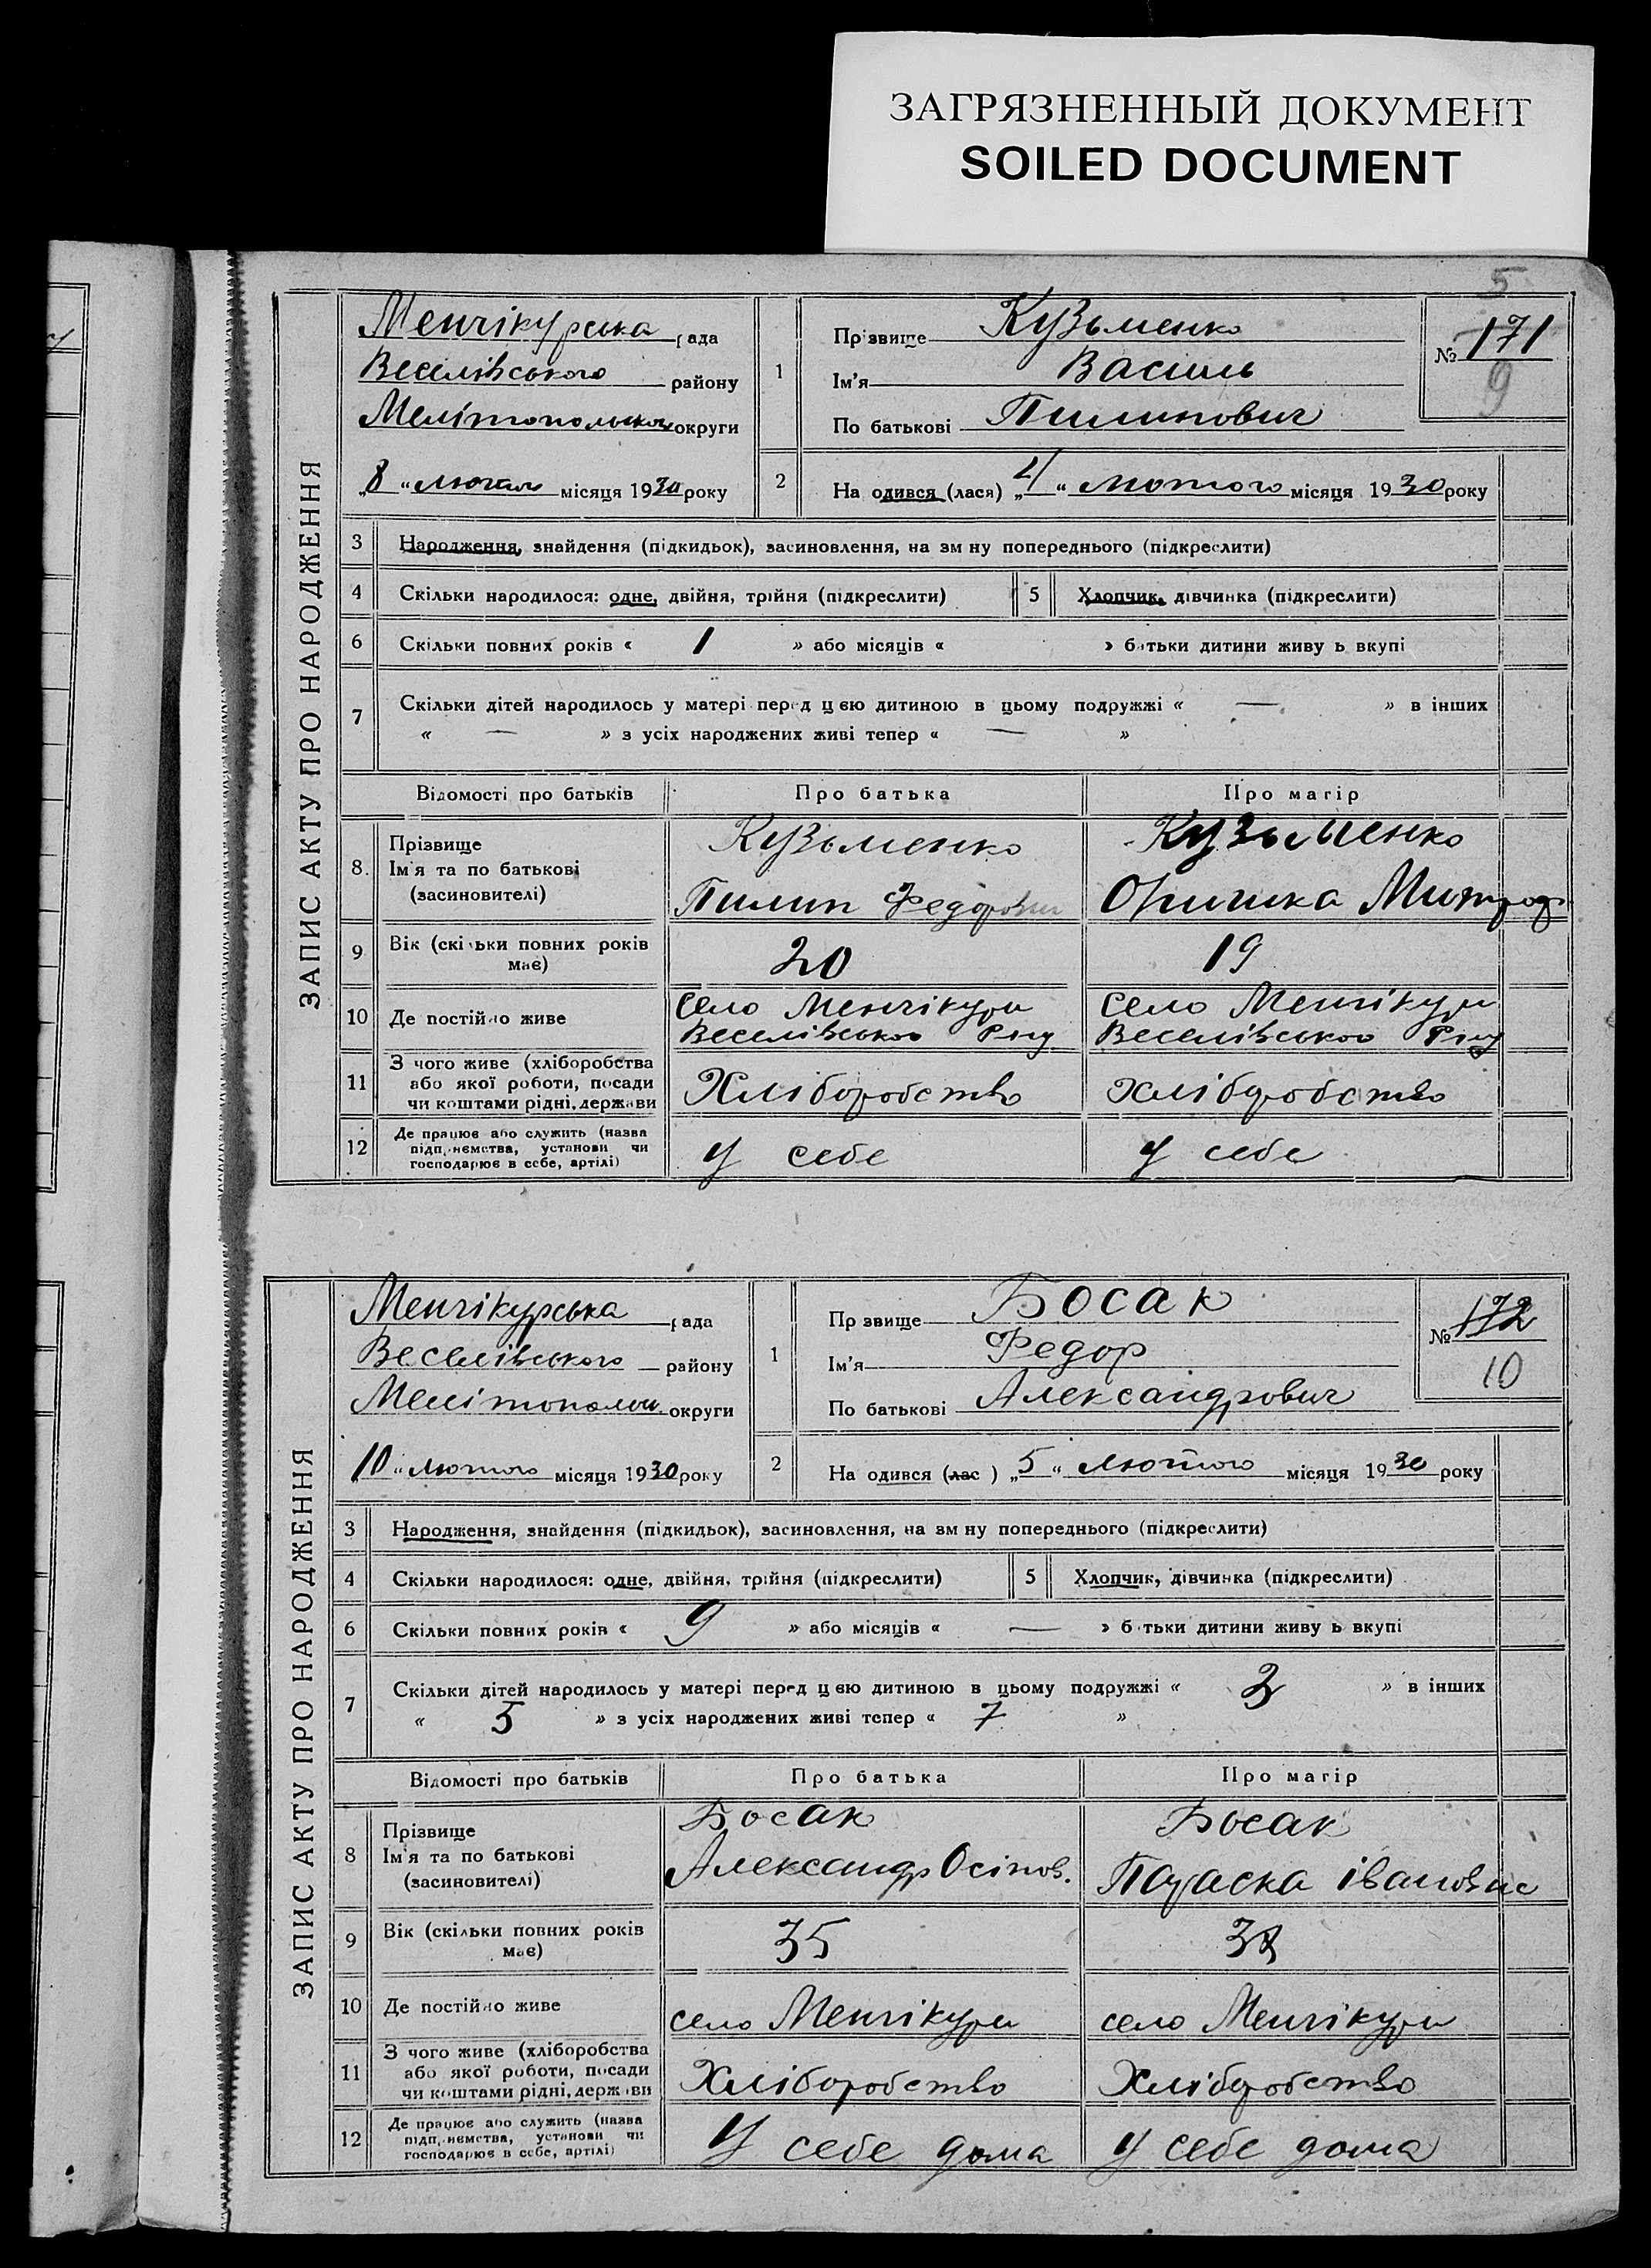 ЗАГРЯЗНЕННЫЙ ДОКУМЕНТ
SOILED DOCUMENT
5
ЗАПИС АКТУ ПРО НАРОДЖЕННЯ
Менчікурська рада
Веселівського району
Мелітопольської округи
„8“ лютого місяця 1930 року
1
Прізвище Кузьменко
Ім'я Василь
По батькові Пилипович
№ 171
9
2
На одився (лася) „4“ лютого місяця 1930 року
3 Народження, знайдення (підкидьок), засиновлення, на зм ну попереднього (підкреслити)
4 Скільки народилося: одне, двійня, трійня (підкреслити) 5 Хлопчик, дівчинка (підкреслити)
6 Скільки повних років « 1 » або місяців « » батьки дитини живу ь вкупі
7 Скільки дітей народилось у матері перед цею дитиною в цьому подружжі « — » в інших
« — » з усіх народжених живі тепер « — »
Відомості про батьків Про батька Про матір
8. Прізвище Кузьменко Кузьменко
Ім'я та по батькові
(засиновителі) Пилип Федорович Оришка Митроф
9 Вік (скільки повних років має) 20 19
10 Де постійно живе село Менчікури село Менчікури
Веселівського Р-ну Веселівського Р-ну
11 З чого живе (хліборобства
або якої роботи, посади
чи коштами рідні, держави Хліборобство Хліборобство
12 Де працює або служить (назва
підприємства, установи чи
господарює в себе, артілі) у себе у себе
ЗАПИС АКТУ ПРО НАРОДЖЕННЯ
Менчікурська рада
Веселівського району
Мелітопольськ округи
„10“ лютого місяця 1930 року
1
Пр звище Босак
Ім'я Федор
По батькові Александрович
№ 172
10
2
На одився (лас ) „5“ лютого місяця 1930 року
3 Народження, знайдення (підкидьок), засиновлення, на зм ну попереднього (підкреслити)
4 Скільки народилося: одне, двійня, трійня (підкреслити) 5 Хлопчик, дівчинка (підкреслити)
6 Скільки повних років « 9 » або місяців « — » б тьки дитини живу ь вкупі
7 Скільки дітей народилось у матері перед цею дитиною в цьому подружжі « 3 » в інших
« 5 » з усіх народжених живі тепер « 7 »
Відомості про батьків Про батька Про матір
8 Прізвище Босак Босак
Ім'я та по батькові
(засиновителі) Александр Осіпов. Параска івановна
9 Вік (скільки повних років має) 35
10 Де постійно живе село Менчікури село Менчікури
11 З чого живе (хліборобства
або якої роботи, посади
чи коштами рідні, держави Хліборобство Хліборобство
12 Де працює або служить (назва
підприємства, установи чи
господарює в себе, артілі) У себе дома У себе дома